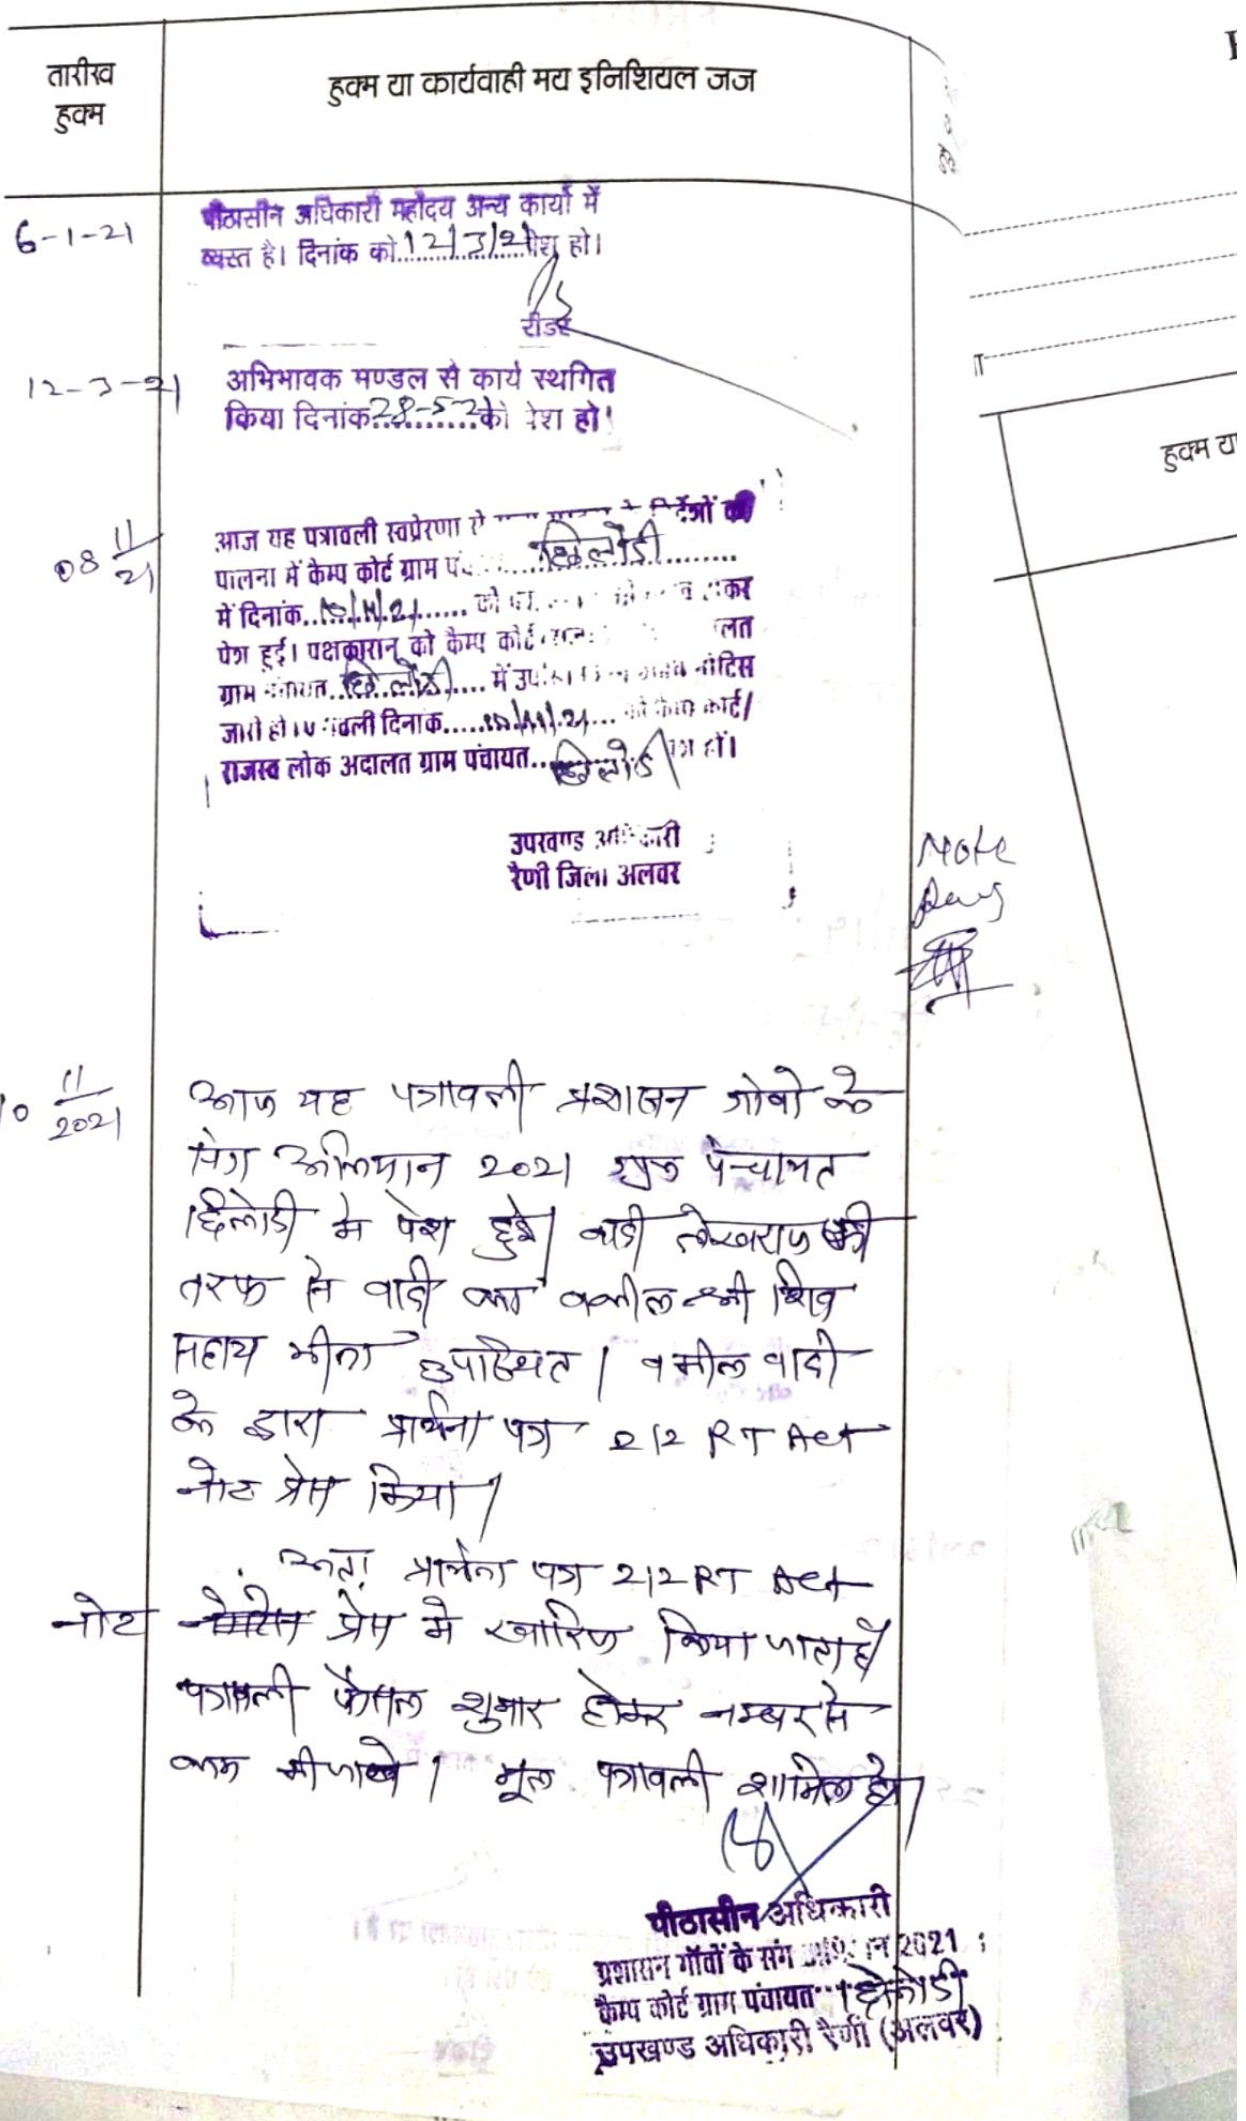 तारीख
हुक्म
हुक्म या कार्यवाही मय इनिशियल जज
6-1-21
पीठासीन अधिकारी महोदय अन्य कार्यो में
व्यस्त है। दिनांक को 12/3/21 पेश हो।
रीडर
12-3-21
अभिभावक मण्डल से कार्य स्थगित
किया दिनांक 28-5-21 को पेश हो।
08 11/21
आज यह पत्रावली स्वप्रेरणा से
पालना में कैम्प कोर्ट ग्राम
में दिनांक 10/11/21
पेश हुई। पक्षकारान् को कैम्प कोर्ट
ग्राम में नोटिस
जारी हो दिनांक 10/11/21 कोर्ट/
राजस्व लोक अदालत ग्राम पंचायत हों।
उपखण्ड अधिकारी
रैणी जिला अलवर
Note
10 11/2021
आज यह पत्रावली प्रशासन गांवो के
संग अभियान 2021 ग्राम पंचायत
में पेश हुई। वादी लेखराज की
तरफ से वादी का वकील श्री शिव
सहाय मीना उपस्थित। वकील वादी
के द्वारा प्रार्थना पत्र 212 RT Act
नोट प्रेस किया।
अतः प्रार्थना पत्र 212 RT Act
नोट प्रेस मे खारिज किया जाता है।
पत्रावली फैसल शुमार होकर नम्बर से
कम की जावे। मूल पत्रावली शामिल हो।
पीठासीन अधिकारी
प्रशासन गॉवों के संग अभियान 2021
कैम्प कोर्ट ग्राम पंचायत
उपखण्ड अधिकारी रैणी (अलवर)
हुक्म या